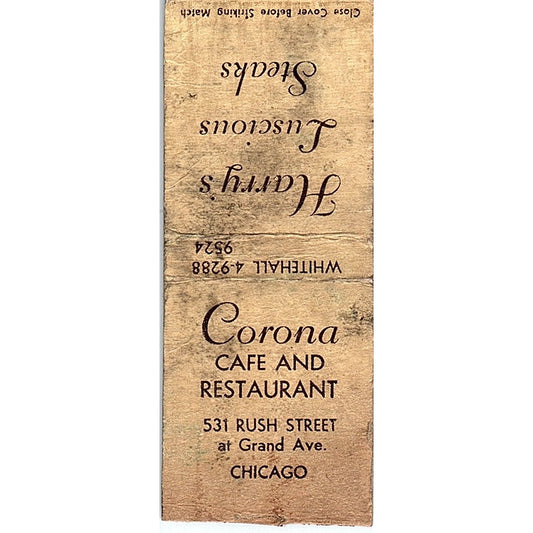 Close Cover Before Striking Match
Harry's
Luscious
Steaks
WHITEHALL 4-9288
9524
Corona
CAFE AND
RESTAURANT
531 RUSH STREET
at Grand Ave.
CHICAGO